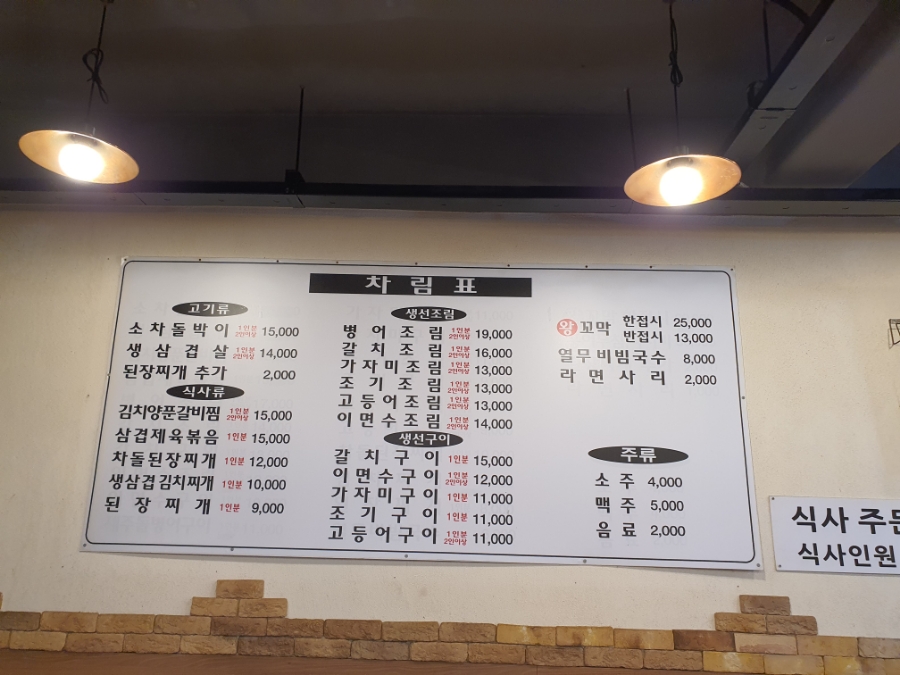 차림표
고기류
소차돌박이 1인분 2인이상 15,000
생삼겹살 1인분 2인이상 14,000
된장찌개 추가 2,000
식사류
김치양푼갈비찜 1인분 2인이상 15,000
삼겹제육볶음 1인분 15,000
차돌된장찌개 1인분 12,000
생삼겹김치찌개 1인분 10,000
된장찌개 1인분 9,000
생선조림
병어조림 1인분 2인이상 19,000
갈치조림 1인분 2인이상 16,000
가자미조림 1인분 2인이상 13,000
조기조림 1인분 2인이상 13,000
고등어조림 1인분 2인이상 13,000
이면수조림 1인분 2인이상 14,000
생선구이
갈치구이 1인분 15,000
이면수구이 1인분 2인이상 12,000
가자미구이 1인분 11,000
조기구이 1인분 11,000
고등어구이 1인분 2인이상 11,000
왕꼬막 한접시 25,000
반접시 13,000
열무비빔국수 8,000
라면사리 2,000
주류
소주 4,000
맥주 5,000
음료 2,000
식사 주문
식사인원